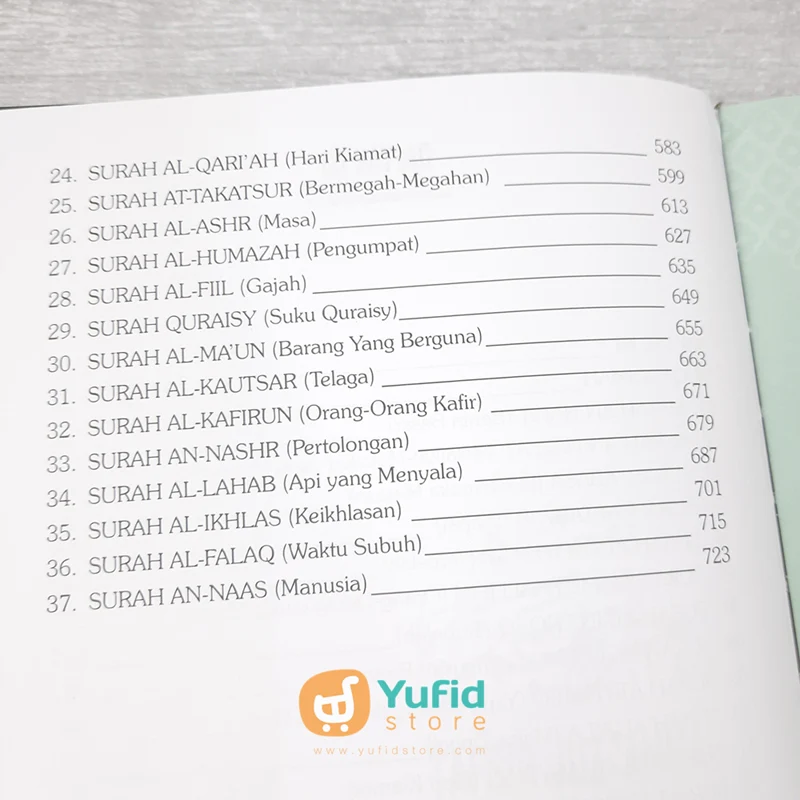 24. SURAH AL-QARI'AH (Hari Kiamat) 583
25. SURAH AT-TAKATSUR (Bermegah-Megahan) 599
26. SURAH AL-ASHR (Masa) 613
27. SURAH AL-HUMAZAH (Pengumpat) 627
28. SURAH AL-FIIL (Gajah) 635
29. SURAH QURAISY (Suku Quraisy) 649
30. SURAH AL-MA'UN (Barang Yang Berguna) 655
31. SURAH AL-KAUTSAR (Telaga) 663
32. SURAH AL-KAFIRUN (Orang-Orang Kafir) 671
33. SURAH AN-NASHR (Pertolongan) 679
34. SURAH AL-LAHAB (Api yang Menyala) 687
35. SURAH AL-IKHLAS (Keikhlasan) 701
36. SURAH AL-FALAQ (Waktu Subuh) 715
37. SURAH AN-NAAS (Manusia) 723
Yufid
store
www.yufidstore.com